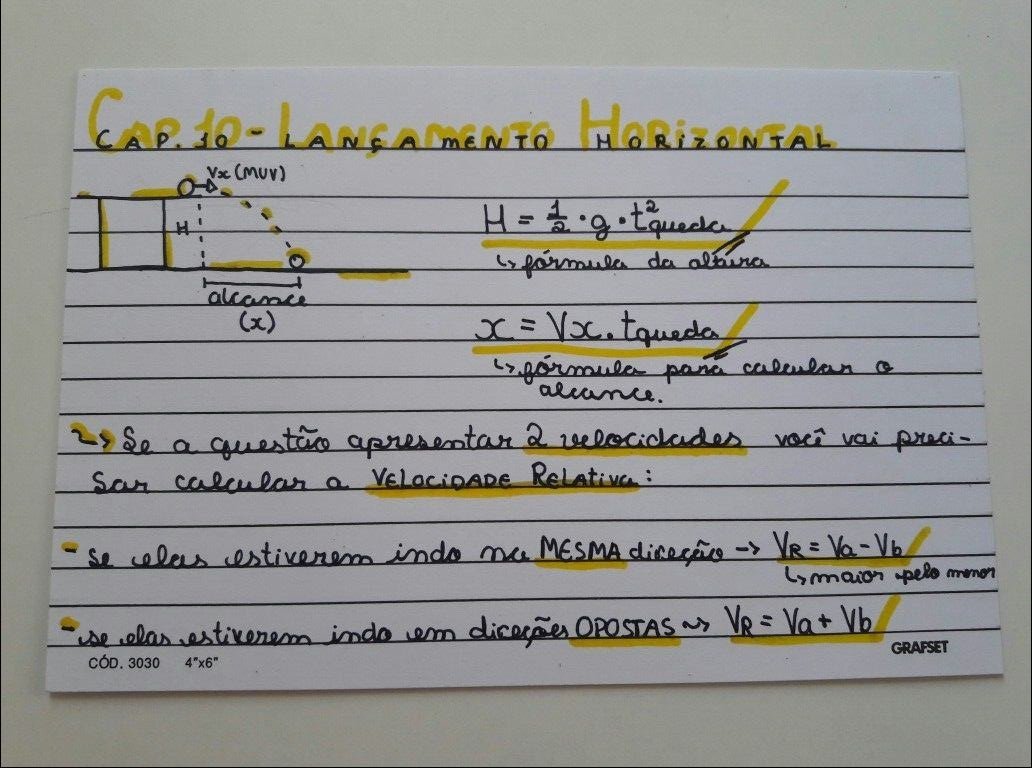 CAP.10 - LANÇAMENTO HORIZONTAL
Vx (MUV)
H
alcance
(x)
H = 1/2 · g · t²queda
↳ fórmula da altura
x = Vx . tqueda
↳ fórmula para calcular o
alcance.
2> Se a questão apresentar 2 velocidades você vai preci-
sar calcular a VELOCIDADE RELATIVA:
- se elas estiverem indo na MESMA direção → VR = Va - Vb
↳ maior pelo menor
- se elas estiverem indo em direções OPOSTAS ~> VR = Va + Vb
CÓD. 3030 4"x6"
GRAFSET